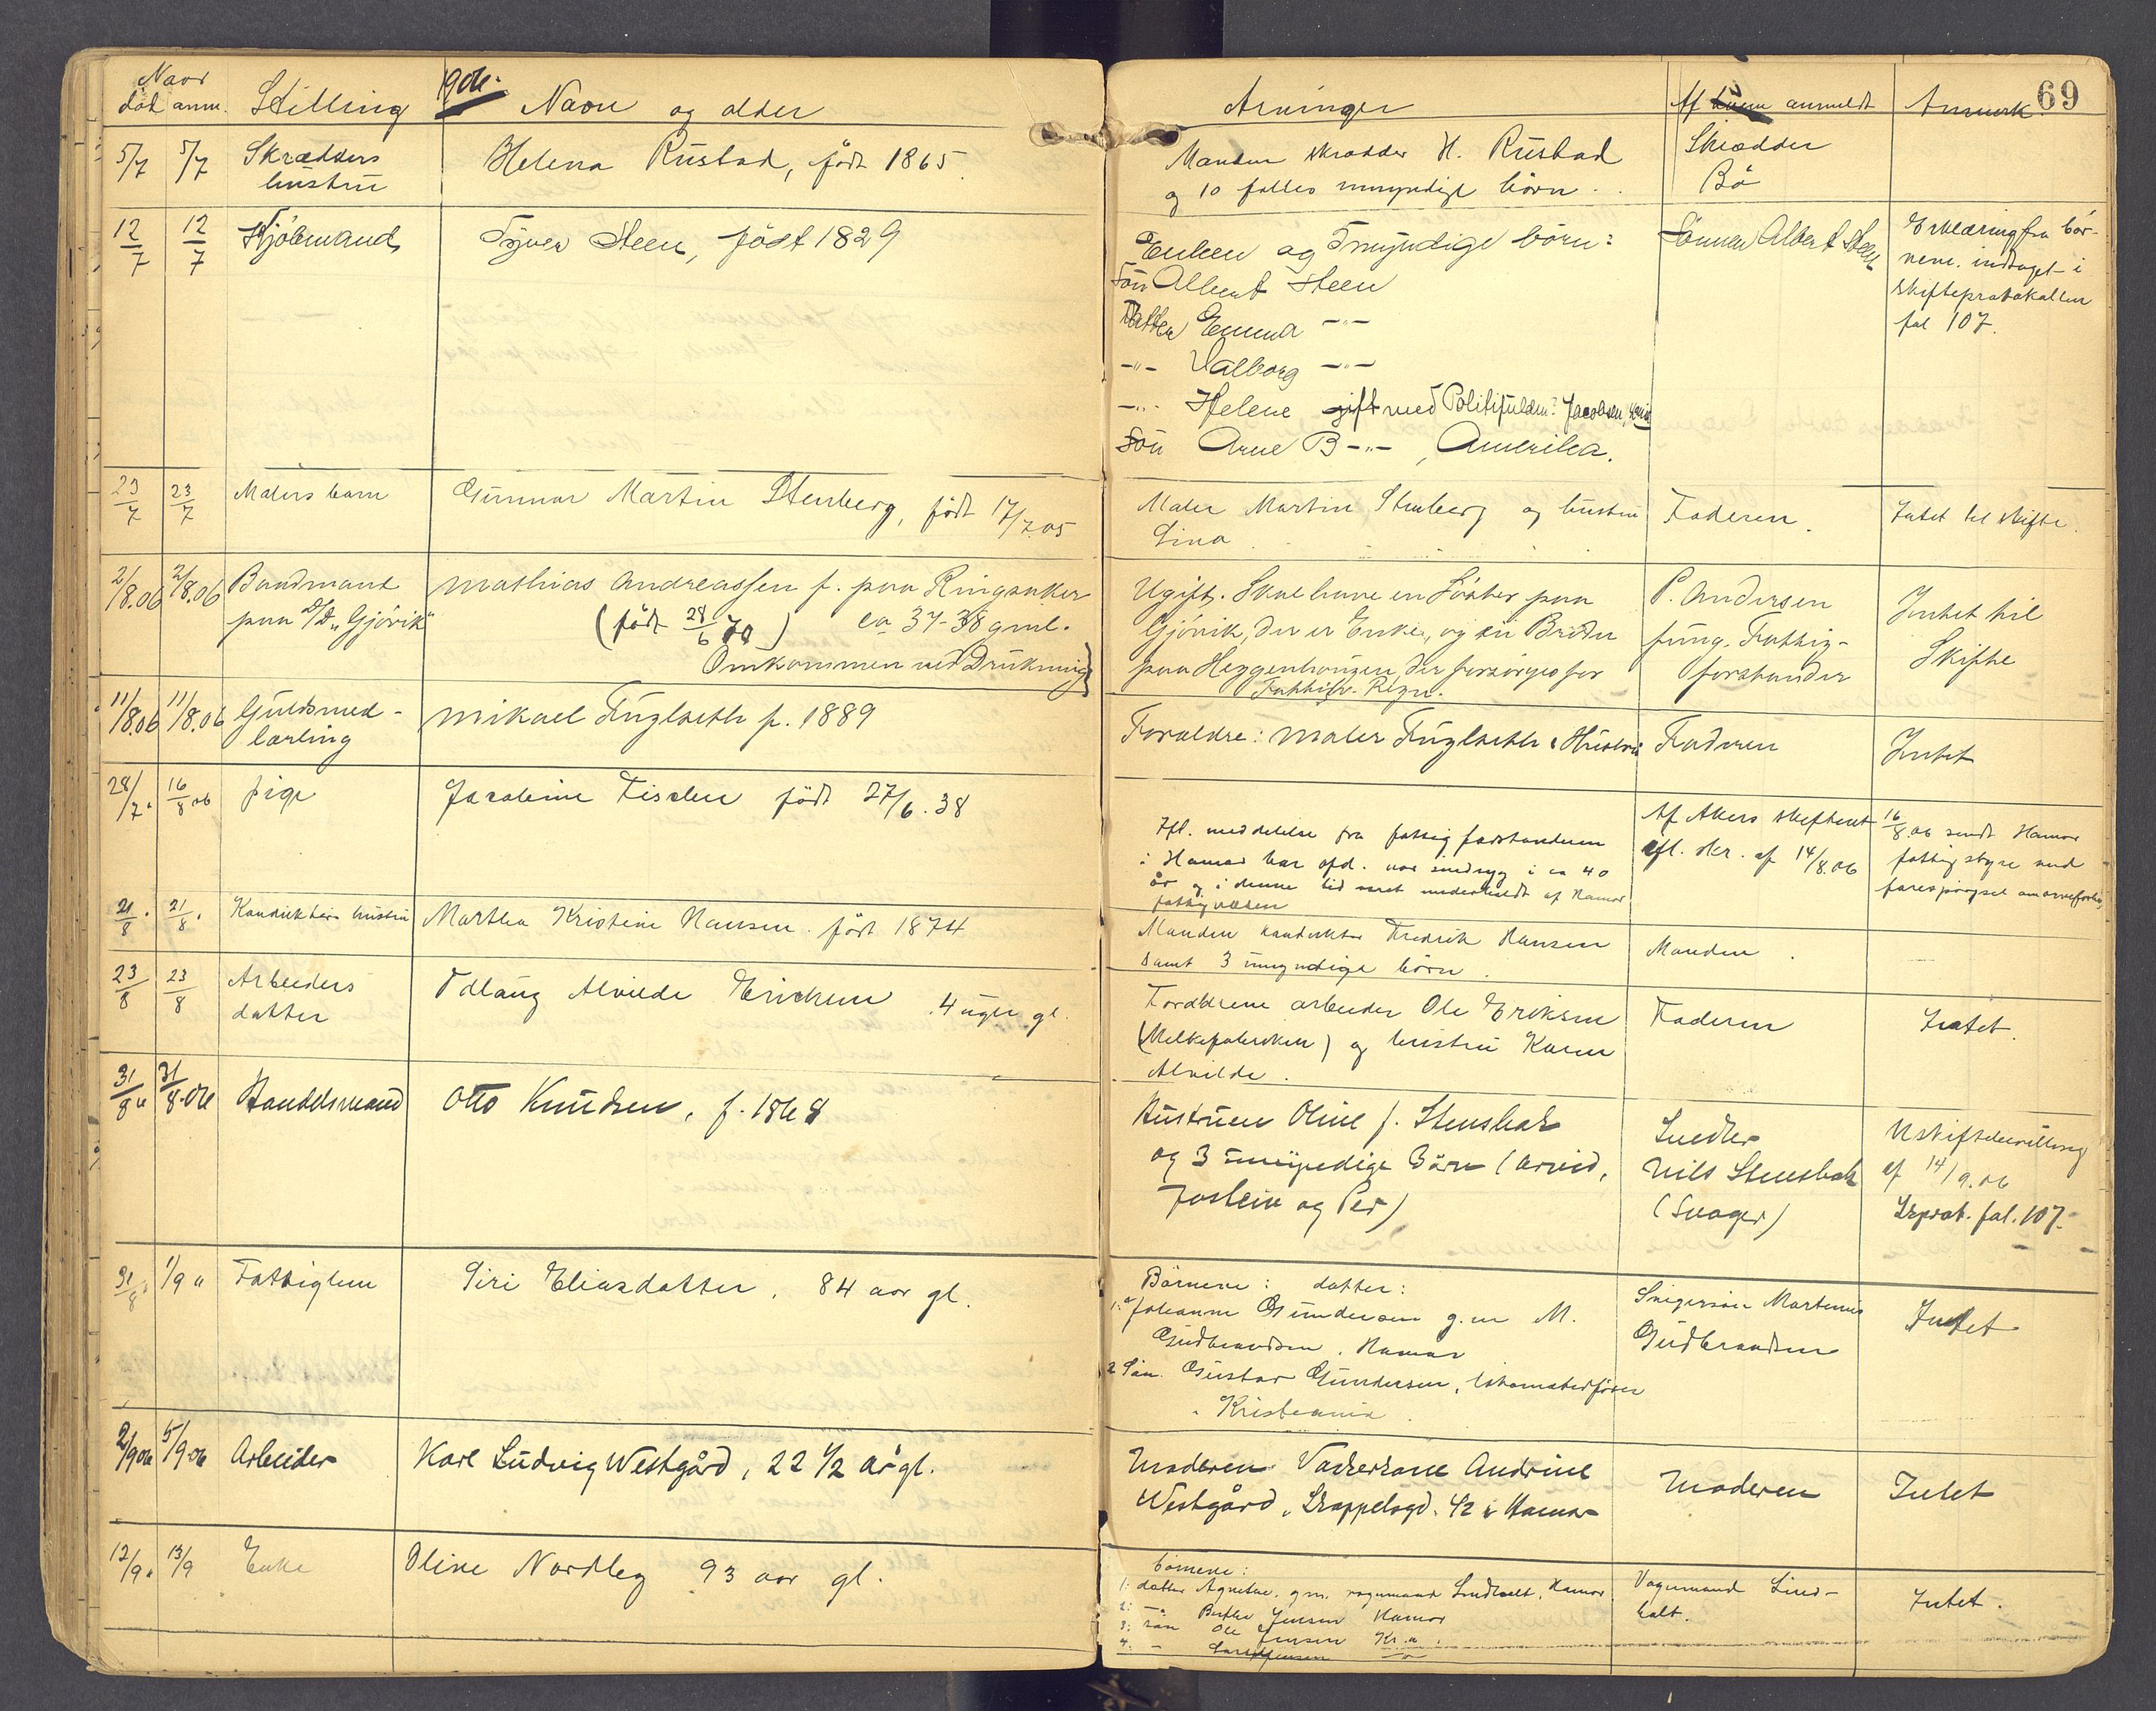 Naar
död anm. Stilling 1906. Navn og alder Arvinger Af hvem anmeldt Anmerk. 69
5/7 5/7 Skrædders Helena Rustad, født 1865. Manden skrædder H. Rustad Skrædder
hustru og 10 fælles umyndige børn. Bö
12/7 12/7 Kjöbmand Syver Steen, född 1829 Enken og myndige börn: Sönnen Albert Steen Erklæring fra bör-
Sön Albert Steen nene. indtaget i
Datter Emma -"- skifteprotokollen
-"- Valborg -"- fol 107.
-"- Helene gift med Politifuldm. Jacobsen,
Sön Arne B -"-, Amerika.
23/7 23/7 Malers barn Gunnar Martin Stenberg, født 17/7.05 Maler Martin Stenberg og hustru Faderen. Intet til skifte.
Lina
2/8.06 2/8.06 Baadmand Mathias Andreassen f. paa Ringsaker Ugift. Skal have en Söster paa P. Andersen Intet til
paa D/S "Gjövik" (født 28/6 70) ca 37-38 gml. Gjövik, der er Enke, og en Broder fung. Fattig- Skifte
Omkommen ved Drukning paa Heggenhougen, der forsörges for forstander
Fattigv. Regn.
11/8.06 11/8.06 Guldsmed- Mikael Fuglseth f. 1889 Forældre: Maler Fuglseth & Hustru Faderen Intet
lærling
28/7. 16/8 06 pige Jacobine Fischer født 27/6.38 Ifl. meddelelse fra fattigforstanderen Af Akers skifteret 16/8.06 sendt Hamar
i Hamar har afd. vær sindsyg i ca 40 ifl. skr. af 14/8.06 fattigstyre med
år og i denne tid været underholdt af Hamar forespörgsel om arveforh.
fattigvæsen
21/8. 21/8. Konduktørs hustru Martha Kristine Hansen. født 1874 Manden konduktør Fredrik Hansen Manden.
samt 3 umyndige börn.
23/8 23/8 Arbeiders Odlaug Alvilde Eriksen 4 uger gl. Forældrene arbeider Ole Eriksen Faderen Intet.
datter (Melkefabriken) og hustru Karen
Alvilde.
31/8 " 31/8.06 Handelsmand Otto Knudsen, f. 1868 Hustruen Oline f. Stensbak Snedker Uskiftebevilling
og 3 umyndige Börn (Arvid, Nils Stensbak af 14/9.06
Jostein og Per) (Svoger) Skprot. fol. 107.
31/8 " 1/9 " Fattiglem Siri Eliasdatter, 84 aar gl. Börnene: datter: Svigersön Martinus Intet
1: Johanne Gundersen g.m M. Gudbrandsen
Gudbrandsen, Hamar
2 Sön. Gustav Gundersen, lokomotivförer
Kristiania.
2/9 06 5/9 06 Arbeider Karl Ludvig Westgård, 22 1/2 år gl. Moderen Vaskekone Andrine Moderen Intet
Westgård, Strappelogd. 42 i Hamar
12/9 " 13/9 Enke Oline Nordleg 93 aar gl. börnene: Vognmand Lind- Intet.
1: datter Agnethe, g.m. vognmand Lindholt, Hamar holt.
2: -"- Berthe Jensen Hamar
3: sön Ole Jensen Kr.a.
4: - Jensen -"-